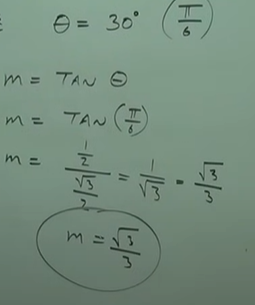 θ = 30° (π/6)
m = TAN θ
m = TAN (π/6)
m = (1/2)/(√3/2) = 1/√3 = √3/3
m = √3/3